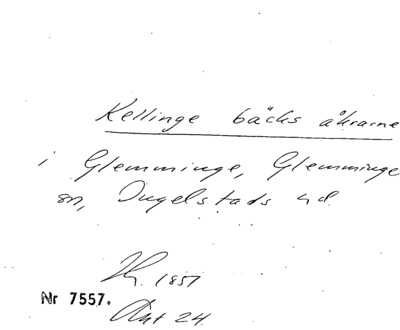 Kellinge bäcks åkrarne
i Glemminge, Glemminge
sn, Ingelstads hd.
1857
Nr 7557.
Akt 24.